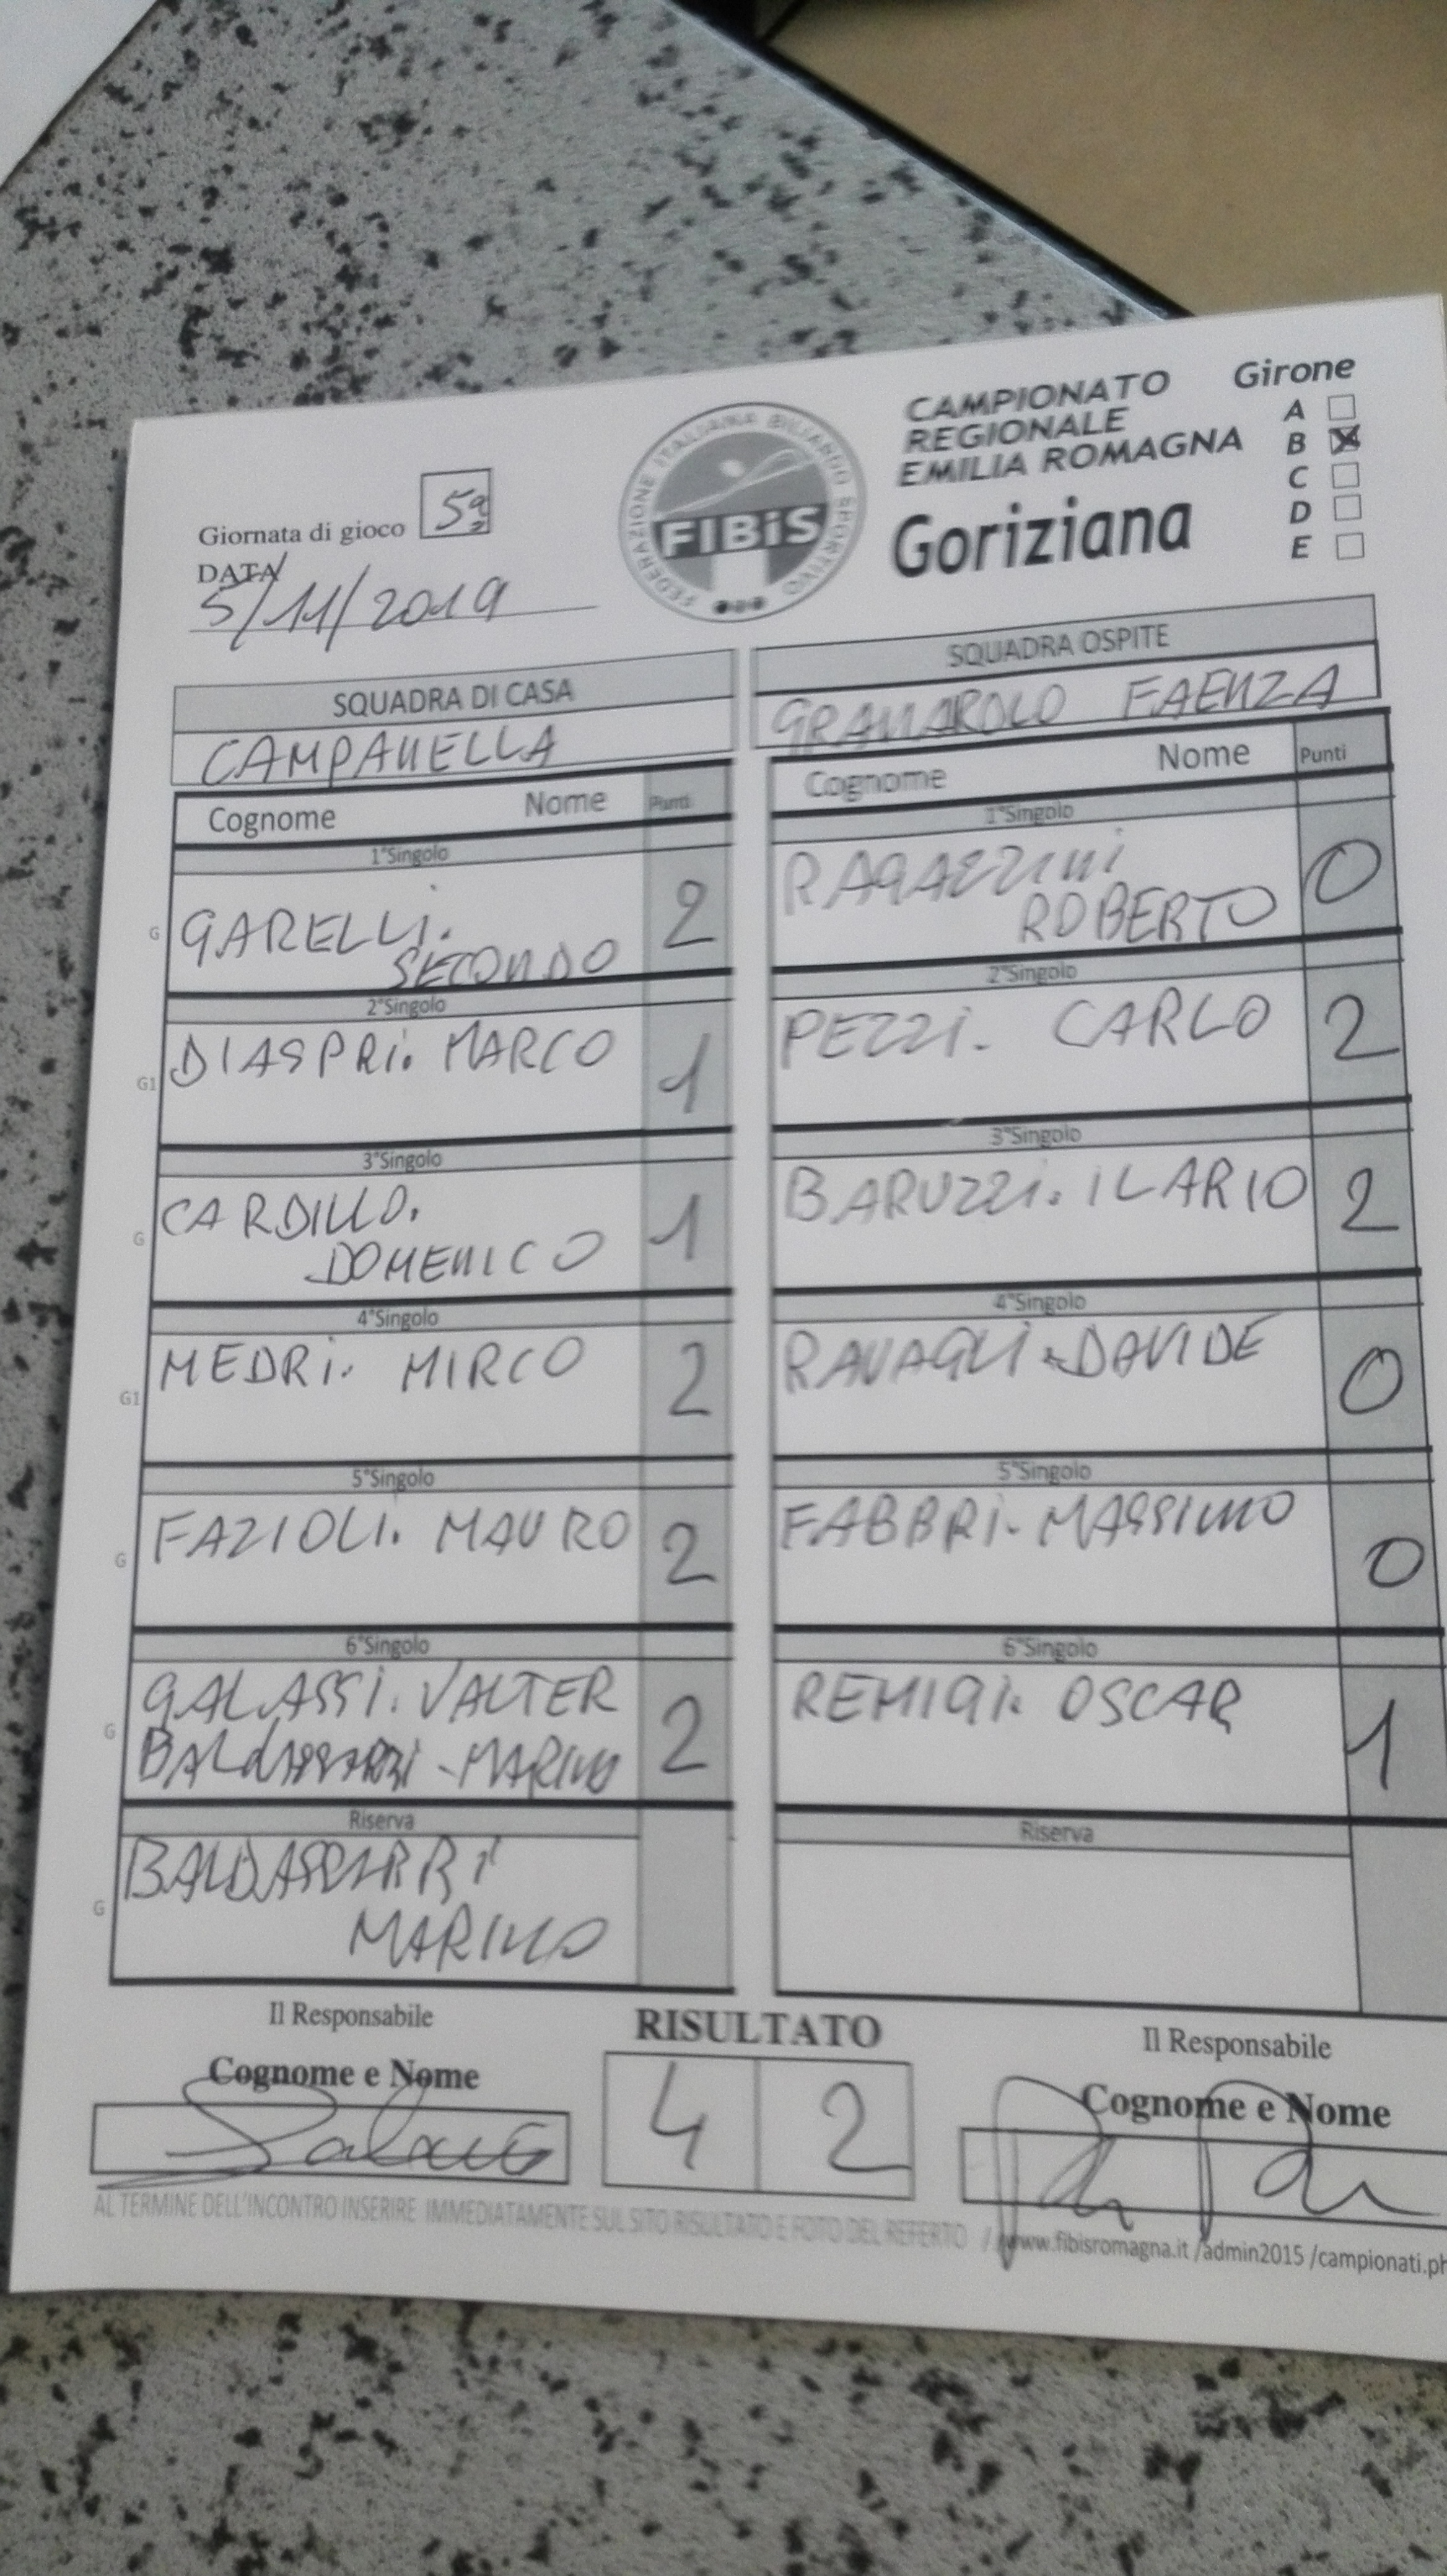 Giornata di gioco 5ª
DATA
5/11/2019
FEDERAZIONE ITALIANA BILIARDO SPORTIVO
FIBiS
CAMPIONATO
REGIONALE
EMILIA ROMAGNA
Goriziana
Girone
A
B X
C
D
E
SQUADRA DI CASA
CAMPANELLA
Cognome Nome Punti
1°Singolo
G GARELLI.
SECONDO 2
2°Singolo
G1 DIASPRI. MARCO 1
3°Singolo
G CARDILLO.
DOMENICO 1
4°Singolo
G1 MEDRI. MIRCO 2
5°Singolo
G FAZIOLI. MAURO 2
6°Singolo
G GALASSI. VALTER 2
BALDASSARRI - MARINO
Riserva
G BALDASSARRI
MARINO
SQUADRA OSPITE
GRANAROLO FAENZA
Cognome Nome Punti
1°Singolo
RAGAZZINI
ROBERTO 0
2°Singolo
PEZZI. CARLO 2
3°Singolo
BARUZZI. ILARIO 2
4°Singolo
RAVAGLI. DAVIDE 0
5°Singolo
FABBRI. MASSIMO 0
6°Singolo
REMIGI. OSCAR 1
Riserva
Il Responsabile
Cognome e Nome
RISULTATO
4 2
Il Responsabile
Cognome e Nome
AL TERMINE DELL'INCONTRO INSERIRE IMMEDIATAMENTE SUL SITO RISULTATO E FOTO DEL REFERTO / www.fibisromagna.it /admin2015 /campionati.ph